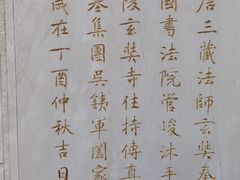 唐三藏法師玄奘奉
國書法院管峻沐手
陵玄奘寺住持傳真
基集團吳鉄軍闔家
歲在丁酉仲秋吉日